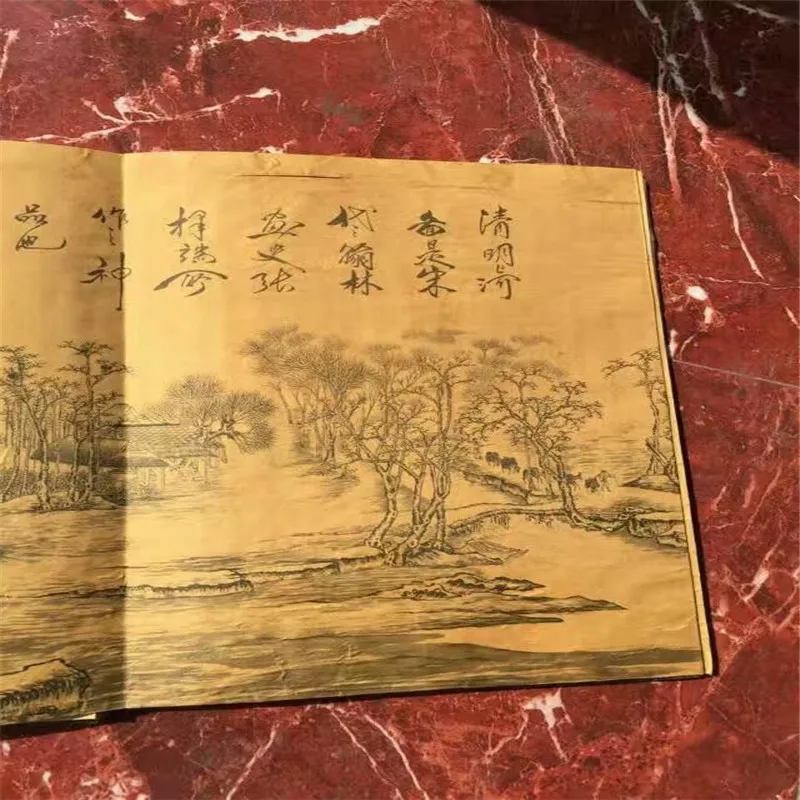 清明上河
啚是宋
代翰林
畫史張
擇端所
作之神
品也